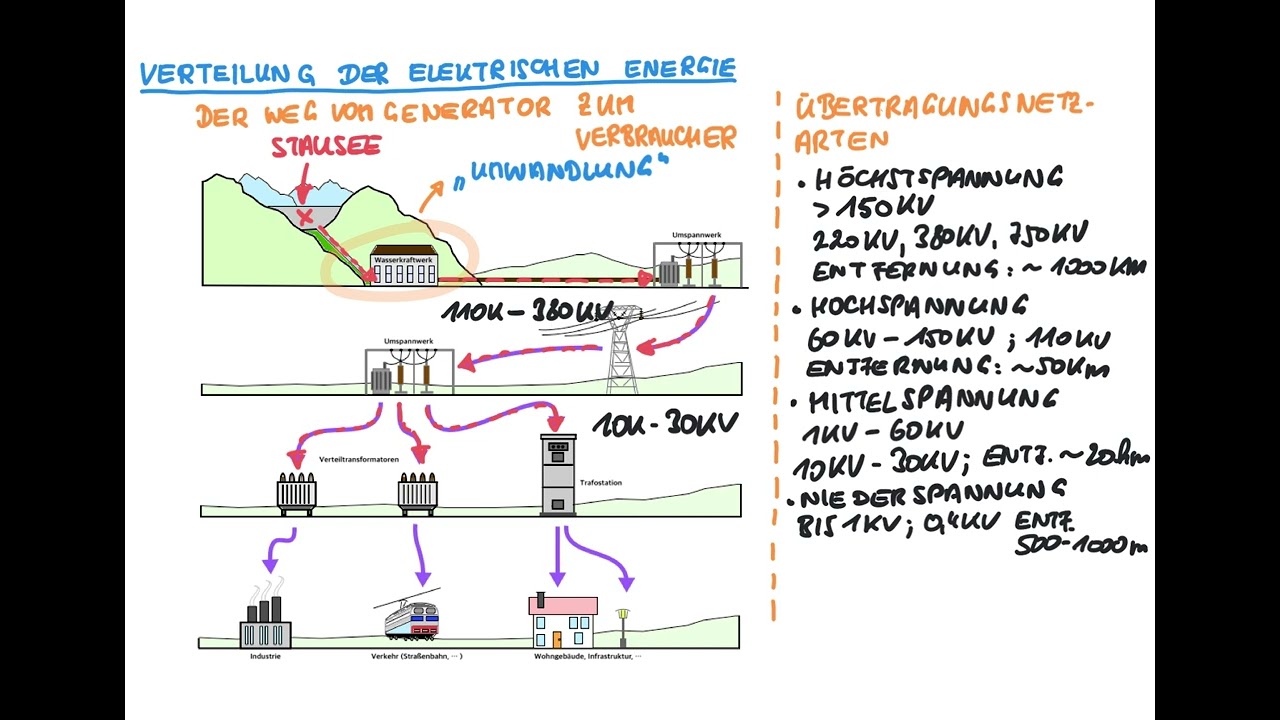 VERTEILUNG DER ELEKTRISCHEN ENERGIE
DER WEG VOM GENERATOR ZUM
VERBRAUCHER
STAUSEE
„UMWANDLUNG"
Umspannwerk
Wasserkraftwerk
110K - 380KV
Umspannwerk
10K - 30KV
Verteiltransformatoren
Trafostation
Industrie
Verkehr (Straßenbahn, ··· )
Wohngebäude, Infrastruktur, ···
ÜBERTRAGUNGSNETZ-
ARTEN
• HÖCHSTSPANNUNG
> 150KV
220KV, 380KV, 750KV
ENTFERNUNG: ~ 1000KM
• HOCHSPANNUNG
60KV - 150KV ; 110KV
ENTFERNUNG: ~50Km
• MITTELSPANNUNG
1KV - 60KV
10KV - 30KV; ENTF. ~20km
• NIEDERSPANNUNG
BIS 1KV; 0,4KV ENTF.
500-1000m